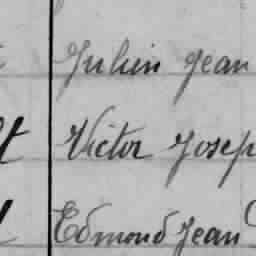 Julien Jean
Victor Josep
Edmond Jean